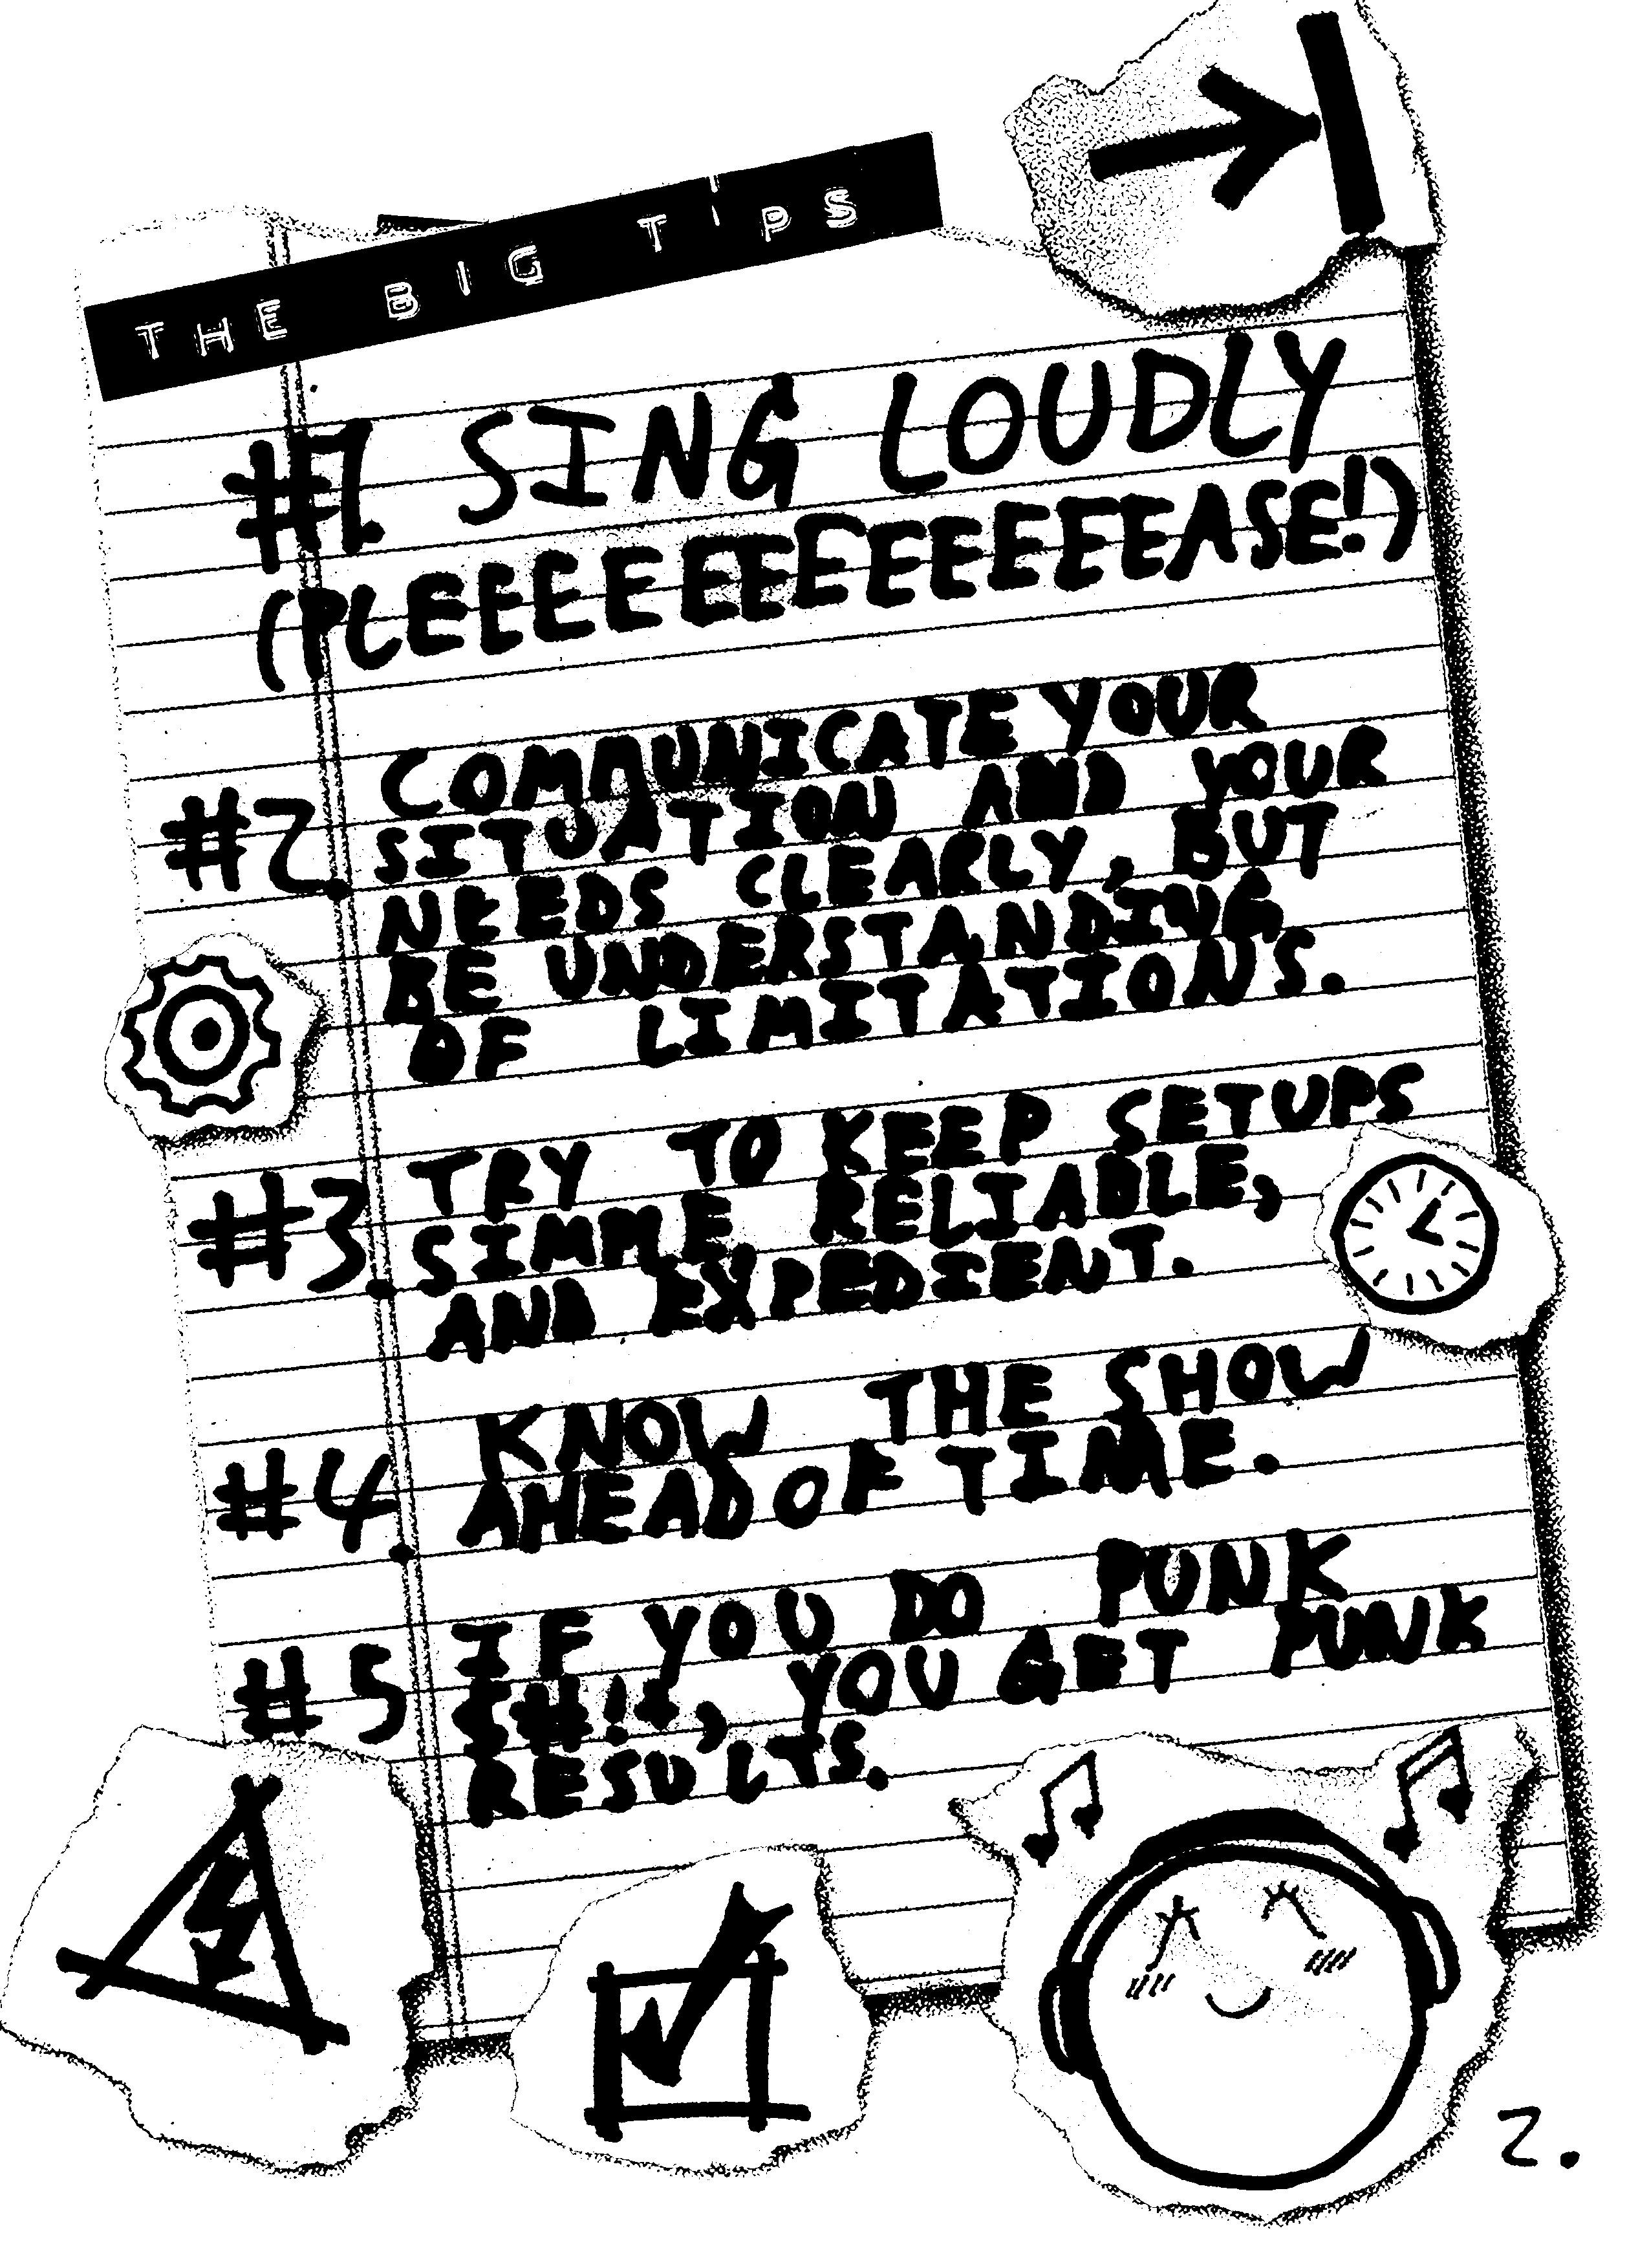 THE BIG TIPS
#1. SING LOUDLY
(PLEEEEEEEEEEEEASE!)
#2. COMMUNICATE YOUR
SITUATION AND YOUR
NEEDS CLEARLY, BUT
BE UNDERSTANDING
OF LIMITATIONS.
#3. TRY TO KEEP SETUPS
SIMPLE, RELIABLE,
AND EXPEDIENT.
#4. KNOW THE SHOW
AHEAD OF TIME.
#5 IF YOU DO PUNK
$#!+, YOU GET PUNK
RESULTS.
2.